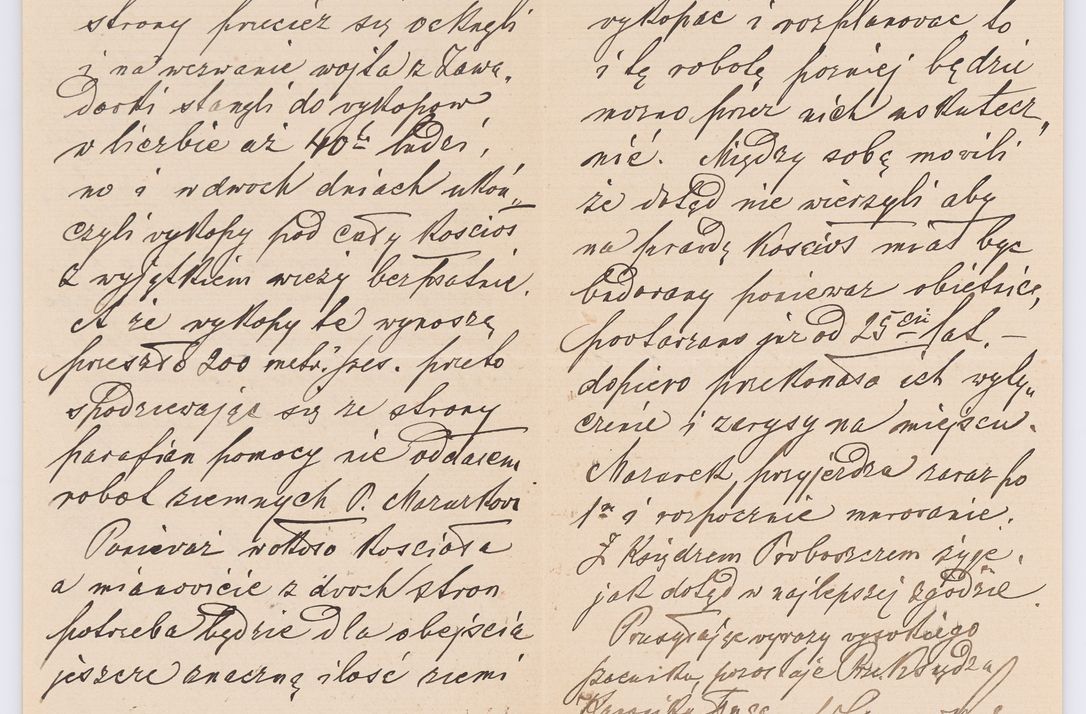 strony przecież się ocknęli
i na wezwanie wojta z Zawa„
dorki stanęli do wykopow
w liczbie aż 40tu ludzi,
no i w dwoch dniach ukoń„
czyli wykopy pod cały kościoł
z wyjątkiem wieży bezpłatnie.
A że wykopy te wynoszą
przeszło 200 metr. sześ. przeto
spodziewając się ze strony
parafian pomocy nie oddałem
robot ziemnych P. Mazurkowi
Ponieważ wokoło Kościoła
a mianowicie z dwoch stron
potrzeba będzie dla obejścia
jeszcze znaczną ilość ziemi
wykopać i rozplanować to
i tę robotę pozniej będzie
mozno przez nich uskutecz„
nić. Między sobą mowili
że dotąd nie wierzyli aby
na prawdę Kościoł miał być
budowany poniewaz obietnicę
powtarzano już od 25ciu lat. —
dopiero przekonała ich wyty„
czenie i zarysy na miejscu.
Mazurek przyjeżdza zaraz po
1m i rozpocznie murowanie.
Z Księdzem Proboszczem żyję
jak dotąd w najlepszej zgodzie.
Przesyłając wyrazy wysokiego
szacunku, pozostaję Prze Księdza
Kanonika